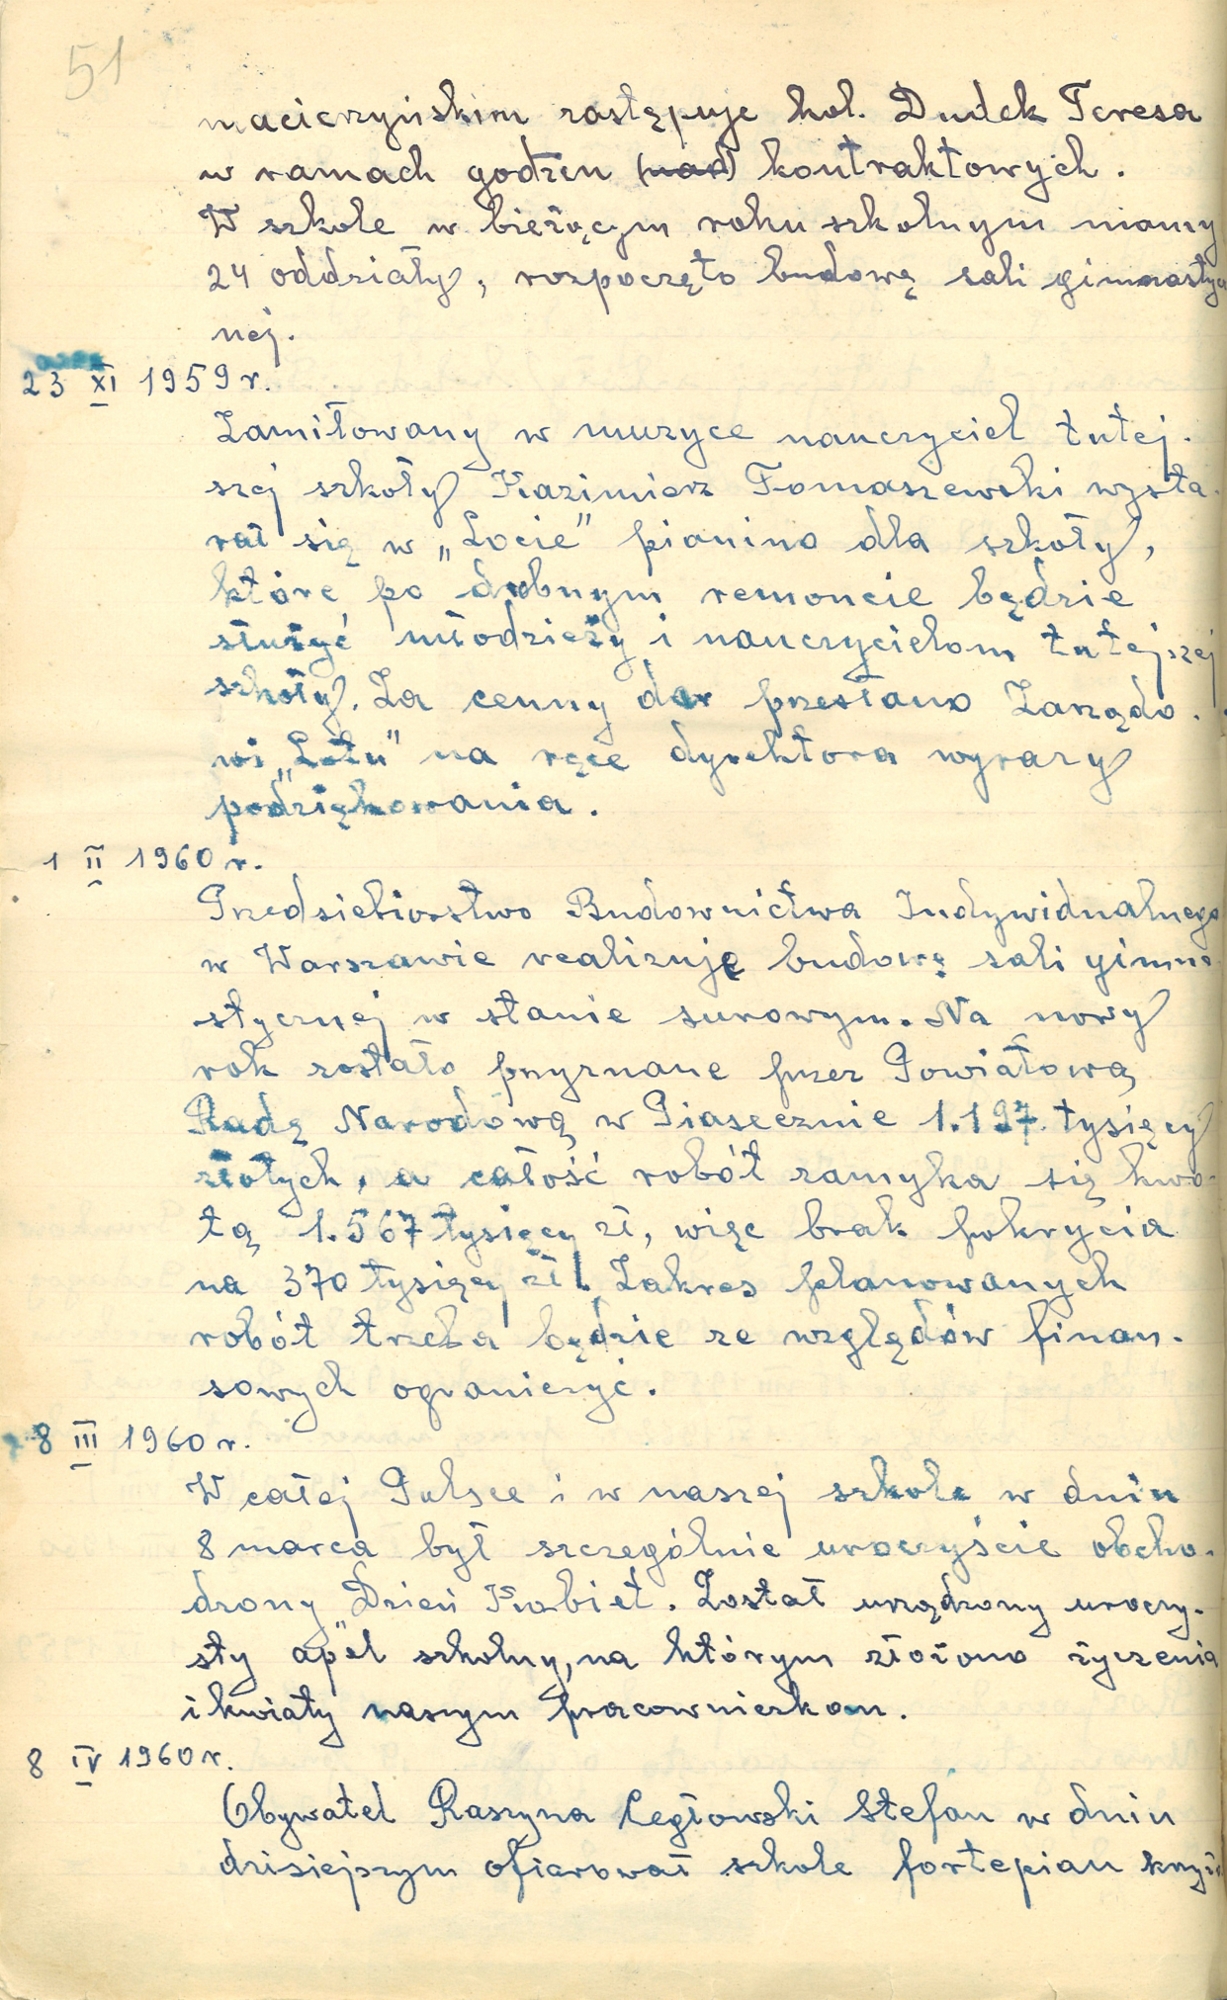 51
macierzyńskim zastępuje kol. Dudek Teresa
w ramach godzen (nad) kontraktowych.
W szkole w bieżącym roku szkolnym mamy
24 oddziały, rozpoczęto budowę sali gimnastycz
nej.
23 XI 1959 r.
Zamiłowany w muzyce nauczyciel tutej-
szej szkoły Kazimierz Tomaszewski wysta-
rał się w „Locie” pianino dla szkoły,
które po drobnym remoncie będzie
służyć młodzieży i nauczycielom tutejszej
szkoły. Za cenny dar przesłano Zarządo-
wi „Lotu” na ręce dyrektora wyrazy
podziękowania.
1 II 1960 r.
Przedsiebiorstwo Budownictwa Indywidualnego
w Warszawie realizuję budowę sali gimna-
stycznej w stanie surowym. Na nowy
rok zostało przyznane przez Powiatową
Radę Narodową w Piasecznie 1.197. tysięcy
złotych, a całość robót zamyka się kwo-
tą 1.567 tysięcy zł, więc brak pokrycia
na 370 tysięcy zł. Zakres planowanych
robót trzeba będzie ze względów finan-
sowych ograniczyć.
8 III 1960 r.
W całej Polsce i w naszej szkole w dniu
8 marca był szczególnie uroczyście obcho-
dzony „Dzień Kobiet. Został urządzony uroczy-
sty apel szkolny, na którym złożono życzenia
i kwiaty naszym pracowniczkom.
8 IV 1960 r.
Obywatel Raszyna Cegłowski Stefan w dniu
dzisiejszym ofiarował szkole fortepian